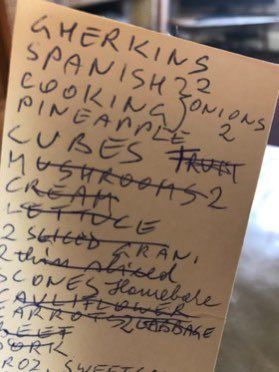 GHERKINS
SPANISH 22
COOKING } ONIONS
PINEAPPLE 2
CUBES FRUIT
MUSHROOMS 2
CREAM
LETTUCE
2 SLICED GRAN.
2 thin sliced
SCONES Homebake
CAULIFLOWER
CARROTS 2 CABBAGE
BEEF
PORK